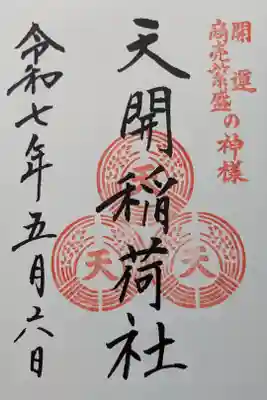 開運
商売繁盛の神様
天開稲荷社
天
天
天
令和七年五月六日